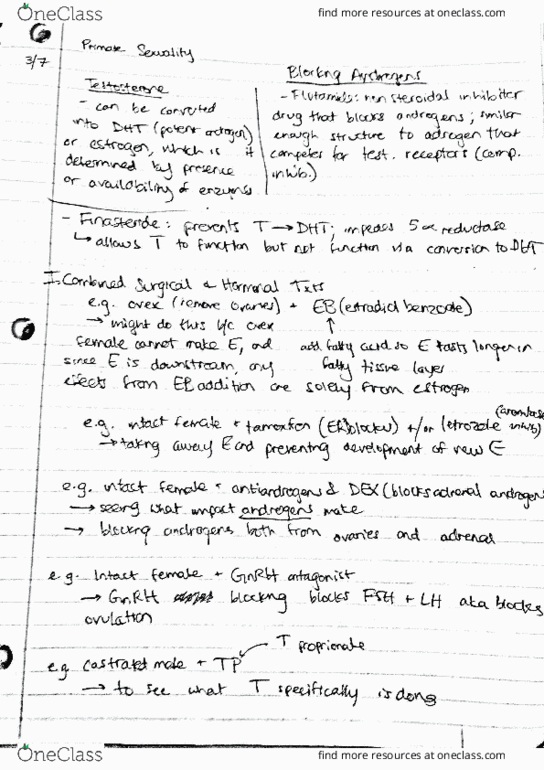 OneClass
find more resources at oneclass.com
3/7
Primate Sexuality
Testosterone
- can be converted
into DHT (potent androgen)
or estrogen, which is it
determined by presence
or availability of enzymes
Blocking Androgens
- Flutamide: non steroidal inhibiter
drug that blocks androgens; similar
enough structure to adrogen that
competes for test. receptors (comp.
inhib.)
- Finasteride: prevents T → DHT; impedes 5 α reductase
↳ allows T to function but not function via conversion to DHT
I. Combined Surgical & Hormonal Txts
e.g. ovex (remove ovaries) + EB (estradiol benzoate)
→ might do this b/c ovex
female cannot make E, and
since E is downstream, any
effects from EB addition are solely from estrogen
add fatty acid so E lasts longer in
fatty tissue layer
e.g. intact female + tamoxifen (ER blocker) +/or letrozole (aromatase inhib)
→ taking away E and preventing development of new E
e.g. intact female + antiandrogens & DEX (blocks adrenal androgens
→ seeing what impact androgens make
→ blocking androgens both from ovaries and adrenal
e.g. Intact female + GnRH antagonist
→ GnRH blocking blocks FSH + LH aka blocks
ovulation
T proprionate
e.g castrated male + TP
→ to see what T specifically is doing
OneClass
find more resources at oneclass.com